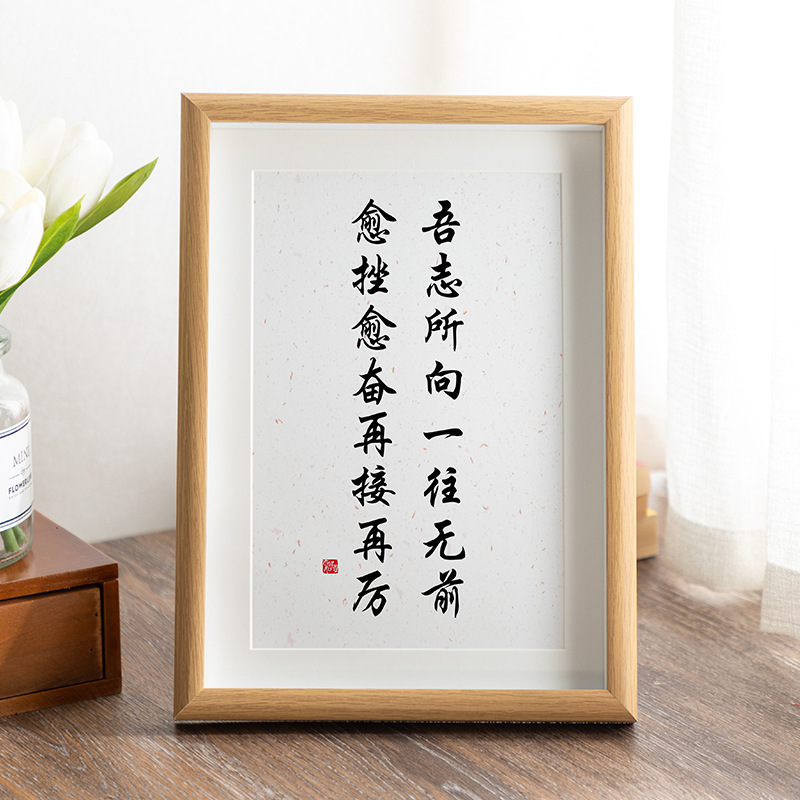 吾志所向一往无前
愈挫愈奋再接再厉
MIN
FLOWER